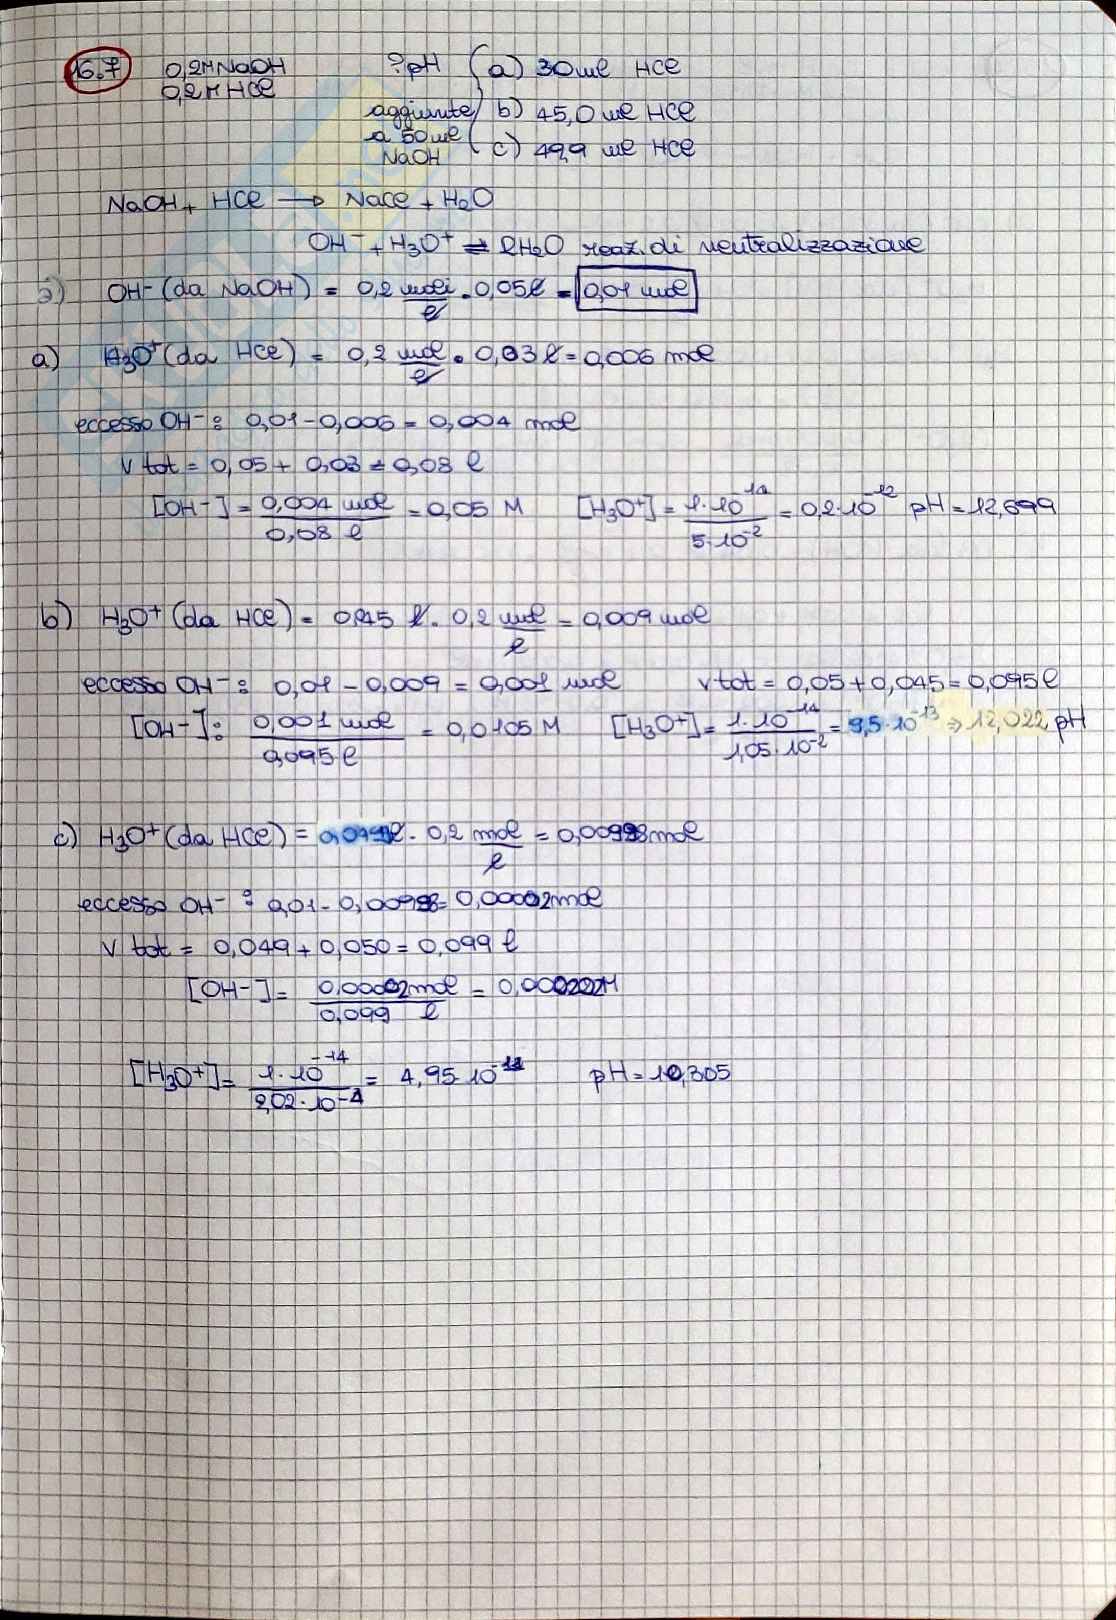 16.7 0,2M NaOH ?pH (a) 30 ml HCl
0,2 M HCl
aggiunte b) 45,0 ml HCl
a 50 ml
NaOH c) 49,9 ml HCl
NaOH + HCl → NaCl + H2O
OH- + H3O+ ⇌ 2H2O reaz. di neutralizzazione
OH- (da NaOH) = 0,2 moli/l · 0,05 l = 0,01 mol
a) H3O+ (da HCl) = 0,2 mol/l · 0,03 l = 0,006 mol
eccesso OH-: 0,01 - 0,006 = 0,004 mol
V tot = 0,05 + 0,03 = 0,08 l
[OH-] = 0,004 mol / 0,08 l = 0,05 M [H3O+] = 1·10-14 / 5·10-2 = 0,2·10-12 pH = 12,699
b) H3O+ (da HCl) = 0,045 l · 0,2 mol/l = 0,009 mol
eccesso OH-: 0,01 - 0,009 = 0,001 mol V tot = 0,05 + 0,045 = 0,095 l
[OH-]: 0,001 mol / 0,095 l = 0,0105 M [H3O+] = 1·10-14 / 1,05·10-2 = 9,5·10-13 ⇒ 12,022 pH
c) H3O+ (da HCl) = 0,0499 l · 0,2 mol/l = 0,00998 mol
eccesso OH-: 0,01 - 0,00998 = 0,00002 mol
V tot = 0,049 + 0,050 = 0,099 l
[OH-] = 0,00002 mol / 0,099 l = 0,000202 M
[H3O+] = 1·10-14 / 2,02·10-4 = 4,95·10-11 pH = 10,305